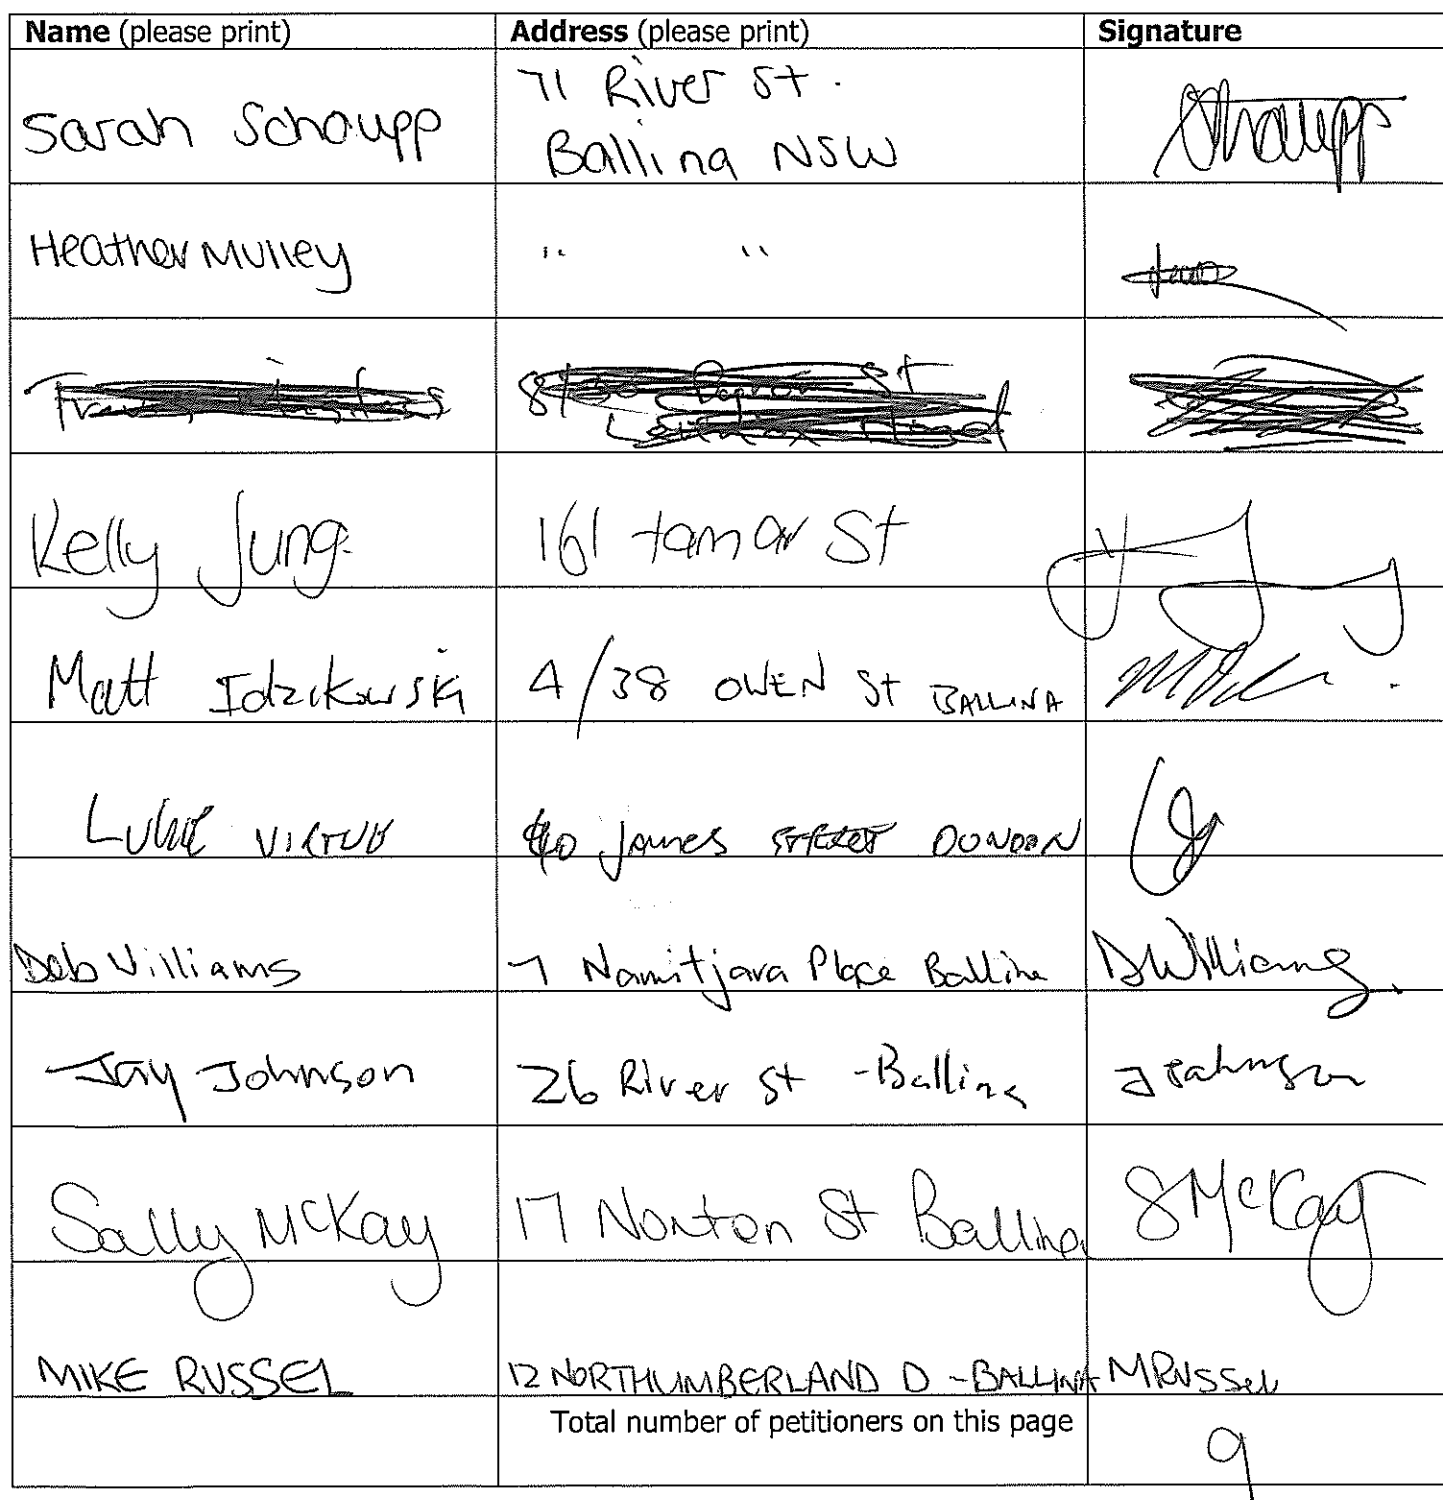 Name (please print) Address (please print) Signature
Sarah Schaupp 71 River St. Schaupp
Ballina NSW
Heather Mulley " "
St
Kelly Jung 161 tamar St
Matt Idzikowski 4/38 OWEN St BALLINA
Luke VIRTUE James STREET
Deb Williams 7 Namitjara Place Ballina DWilliams
Jay Johnson 26 River St - Ballina JJohnson
Sally McKay 17 Norton St Ballina SMcKay
MIKE RUSSEL 12 NORTHUMBERLAND D - BALLINA MRussel
Total number of petitioners on this page
9